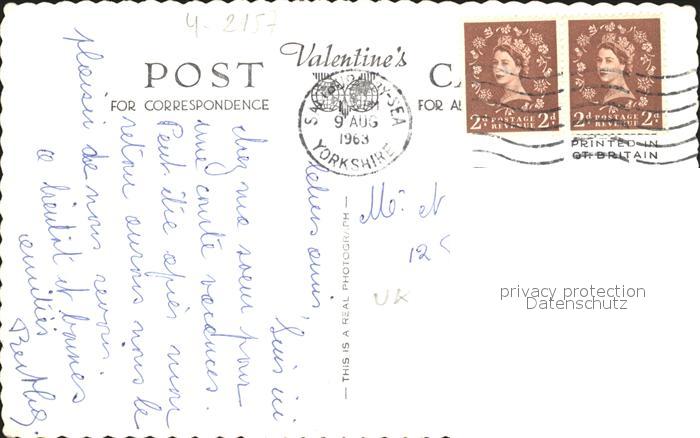 4-2157
Valentine's
POST
FOR CORRESPONDENCE
FOR A
SEA
9 AUG
1963
YORKSHIRE
2d POSTAGE REVENUE 2d
2d POSTAGE REVENUE 2d
PRINTED IN
GT. BRITAIN
THIS IS A REAL PHOTOGRAPH
Mr et
12
UK
privacy protection
Datenschutz
Chers amis,
Suis ici
chez ma soeur pour
une courte vacances.
Peut être après mon
retour aurons nous le
plaisir de nous revoir.
a bientôt et bonnes
amitiés
Berthe.